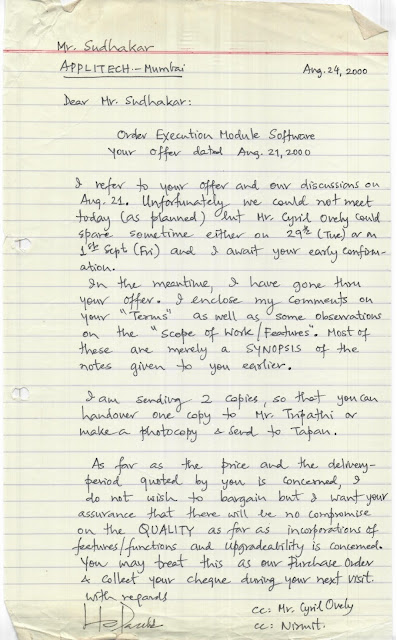 Mr. Sudhakar
APPLITECH - Mumbai
Aug. 24, 2000
Dear Mr. Sudhakar:
Order Execution Module Software
Your Offer dated Aug. 21, 2000
I refer to your offer and our discussions on
Aug. 21. Unfortunately we could not meet
today (as planned) but Mr. Cyril Ovely could
spare sometime either on 29th (Tue) or on
1st Sept (Fri) and I await your early confirm-
ation.
In the meantime, I have gone thru
your offer. I enclose my comments on
your "Terms" as well as some observations
on the "Scope of Work/Features". Most of
these are merely a SYNOPSIS of the
notes given to you earlier.
I am sending 2 copies, so that you can
handover one copy to Mr. Tripathi or
make a photocopy & send to Tapan.
As far as the price and the delivery-
period quoted by you is concerned, I
do not wish to bargain but I want your
assurance that there will be no compromise
on the QUALITY as far as incorporations of
features/functions and upgradeability is concerned.
You may treat this as our Purchase Order
& collect your cheque during your next visit.
with regards
cc: Mr. Cyril Ovely
cc: Nirmit.